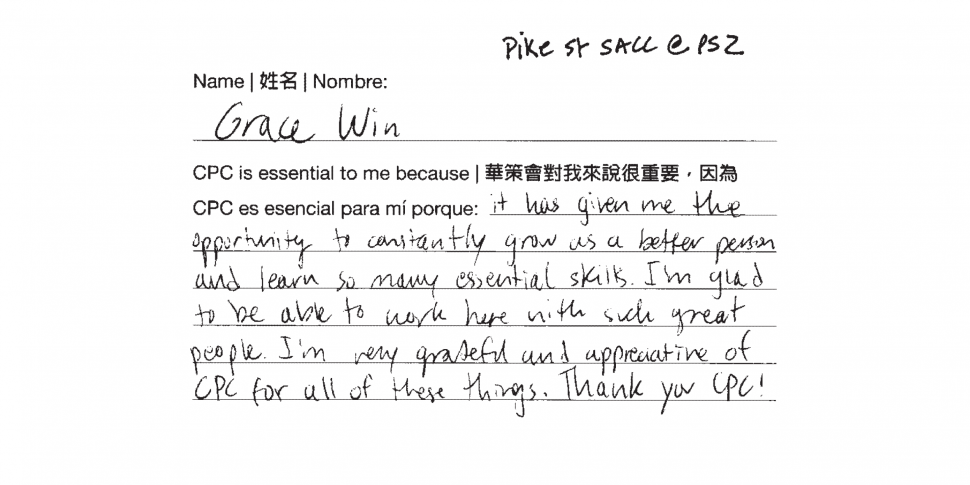 Pike St SACC @ PS2
Name | 姓名 | Nombre:
Grace Win
CPC is essential to me because | 華策會對我來說很重要，因為
CPC es esencial para mí porque: it has given me the
opportunity to constantly grow as a better person
and learn so many essential skills. I'm glad
to be able to work here with such great
people. I'm very grateful and appreciative of
CPC for all of these things. Thank you CPC!